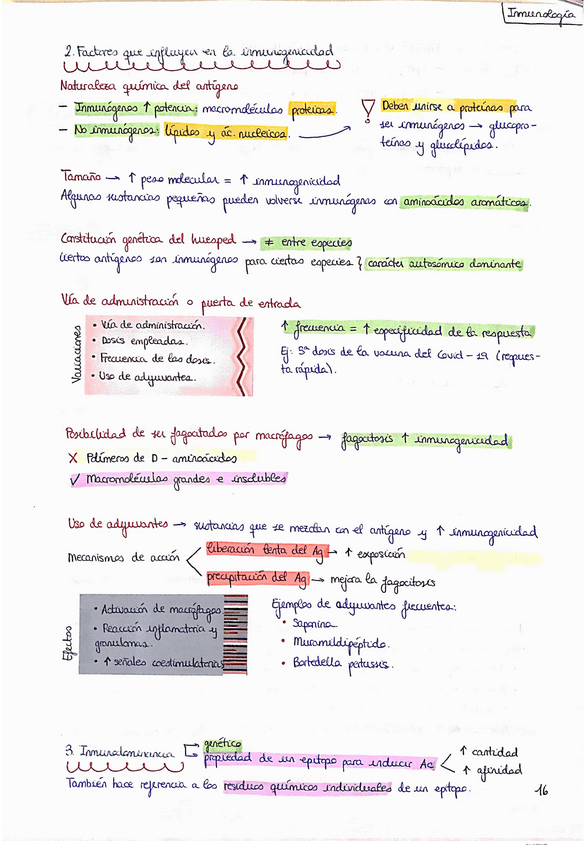 Inmunología
2. Factores que influyen en la inmunogenicidad
Naturaleza química del antígeno
- Inmunógenos ↑ potencia: macromoléculas proteicas.
- No inmunógenos: lípidos y ác. nucleicos.
! Deben unirse a proteínas para
ser inmunógenos → glucopro-
teínas y glucolípidos.
Tamaño → ↑ peso molecular = ↑ inmunogenicidad
Algunas sustancias pequeñas pueden volverse inmunógenas con aminoácidos aromáticos.
Constitución genética del huésped → ≠ entre especies
Ciertos antígenos son inmunógenos para ciertas especies } carácter autosómico dominante
Vía de administración o puerta de entrada
Variaciones
• Vía de administración.
• Dosis empleadas.
• Frecuencia de las dosis.
• Uso de adyuvantes.
↑ frecuencia = ↑ especificidad de la respuesta
Ej: 5ª dosis de la vacuna del Covid-19 (respues-
ta rápida).
Posibilidad de ser fagocitados por macrófagos → fagocitosis ↑ inmunogenicidad
X Polímeros de D-aminoácidos
✓ Macromoléculas grandes e insolubles
Uso de adyuvantes → sustancias que se mezclan con el antígeno y ↑ inmunogenicidad
Mecanismos de acción
liberación lenta del Ag → ↑ exposición
precipitación del Ag → mejora la fagocitosis
Efectos
• Activación de macrófagos
• Reacción inflamatoria y
granulomas.
• ↑ señales coestimulatorias
Ejemplos de adyuvantes frecuentes:
• Saponina.
• Muramildipéptido.
• Bortedella pertussis.
3. Inmunodominancia
genético
propiedad de un epítopo para inducir Ac
↑ cantidad
↑ afinidad
También hace referencia a los residuos químicos individuales de un epítopo.
16